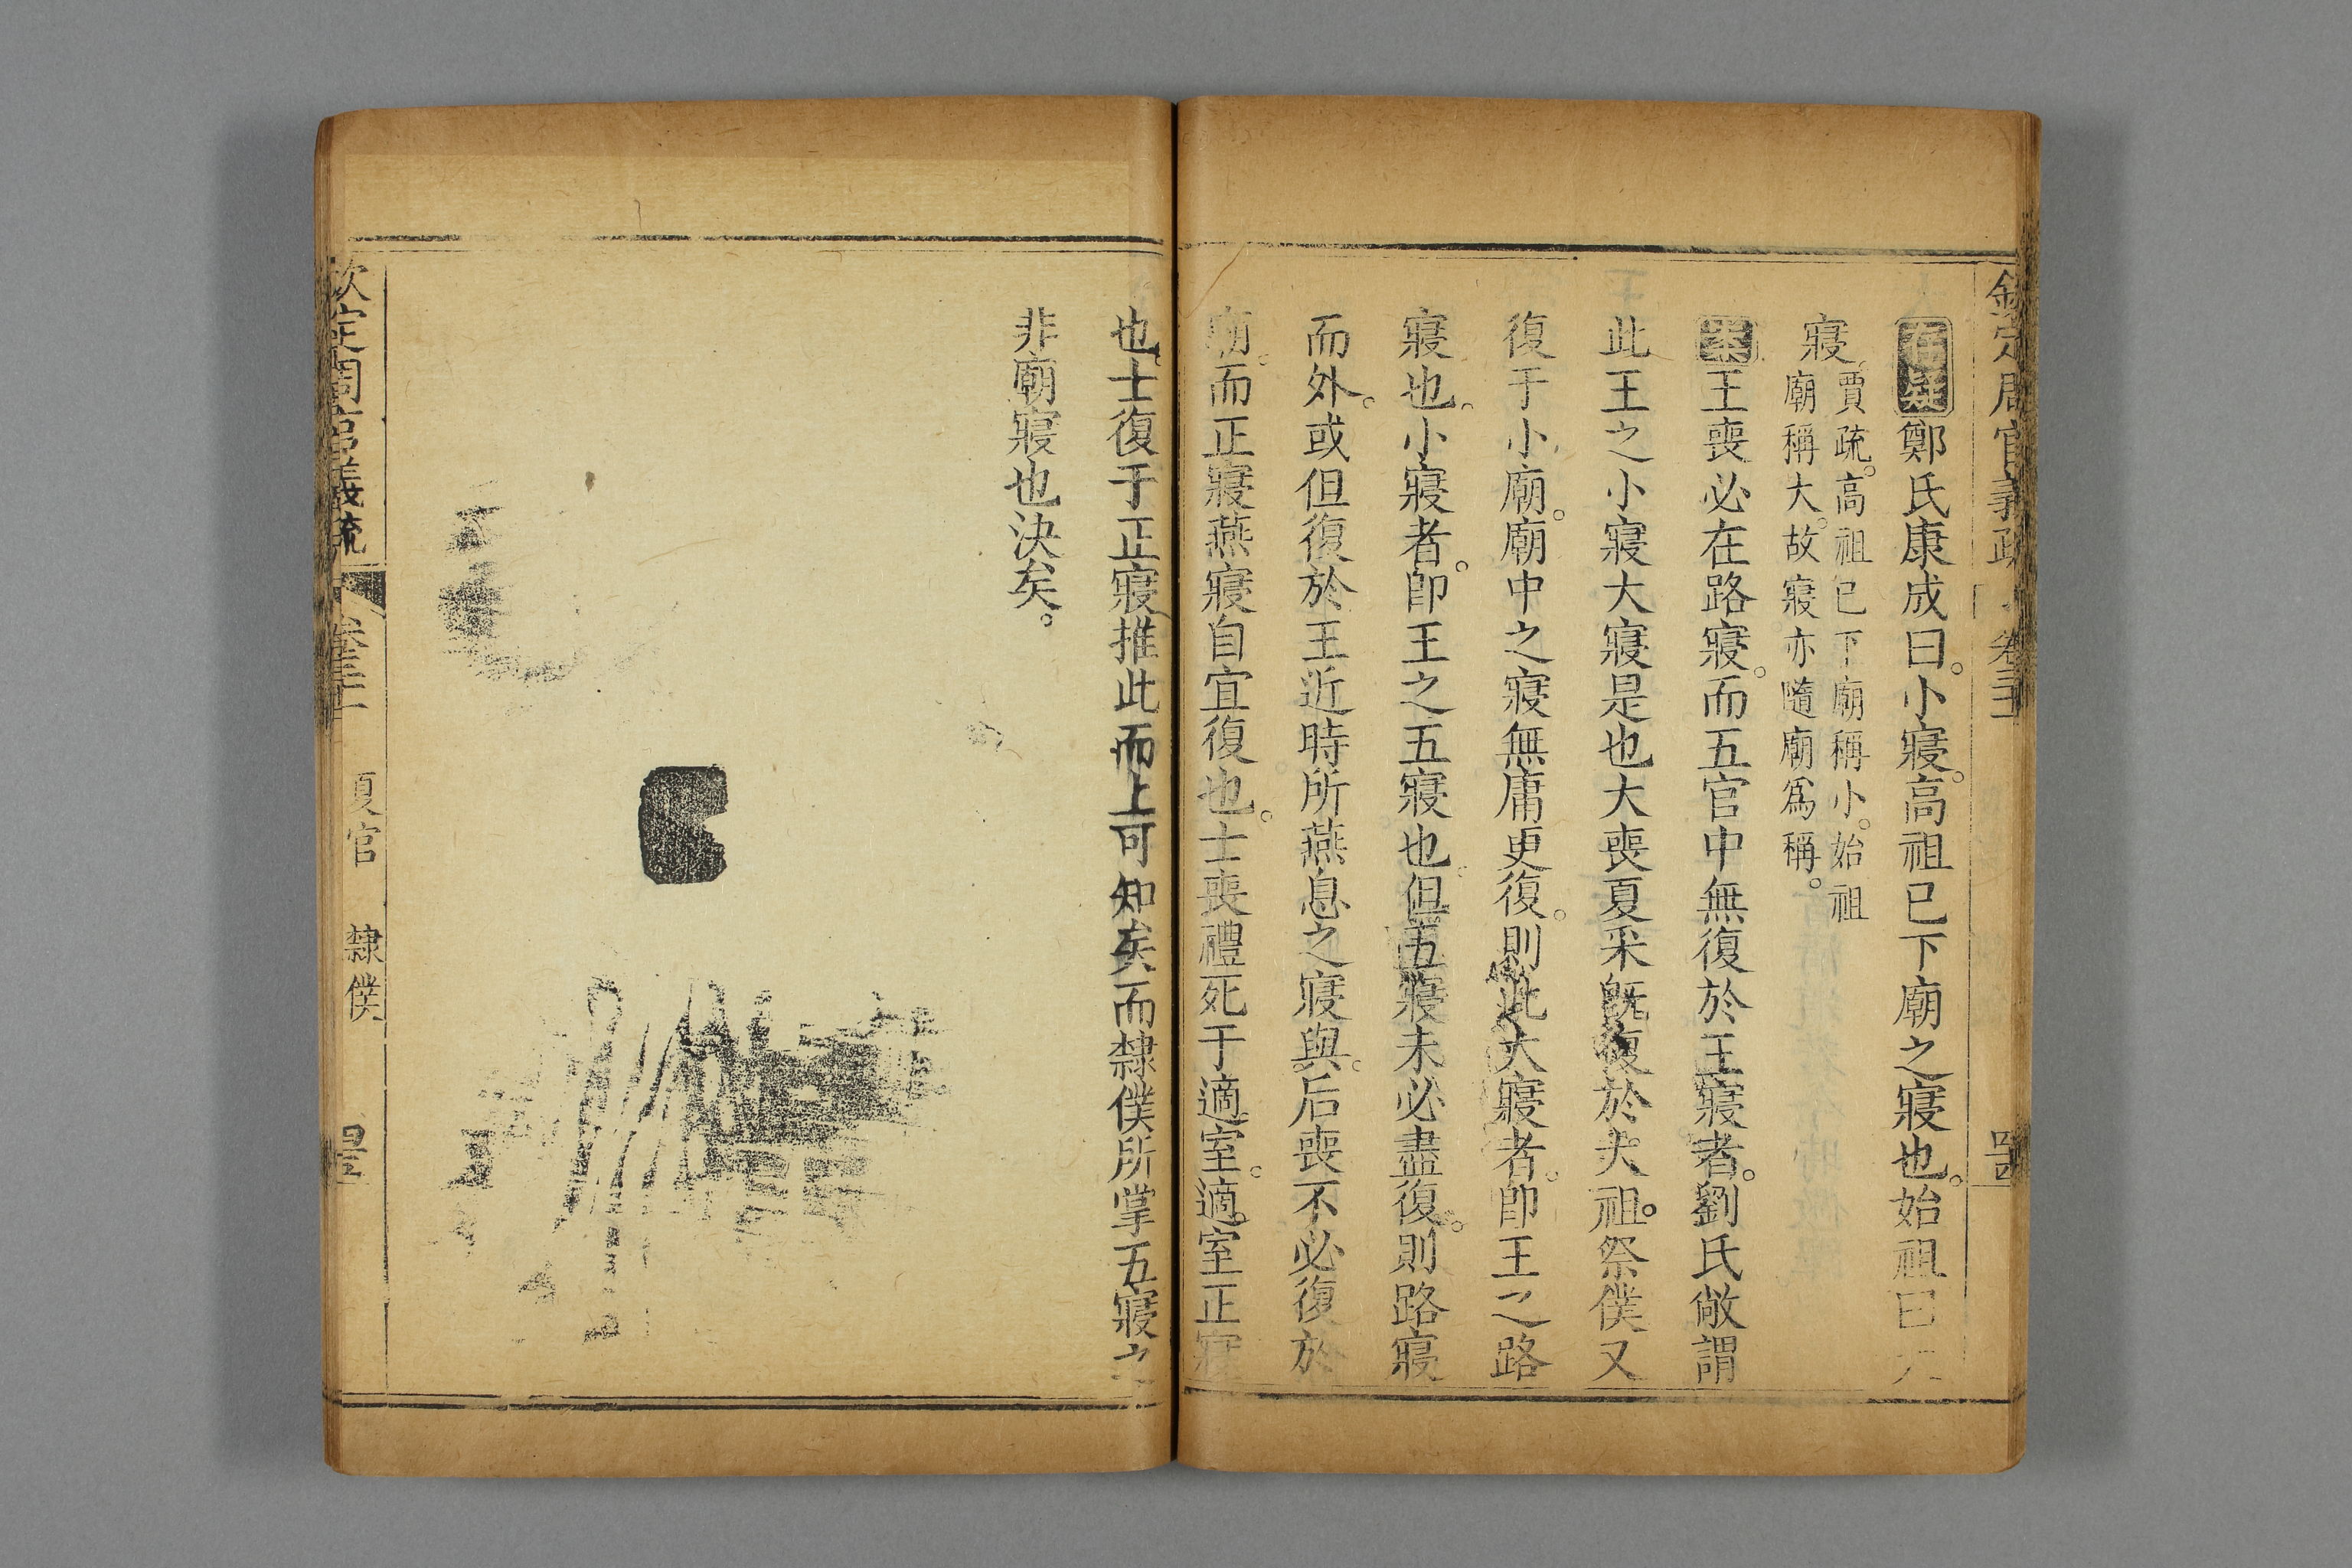 欽定周官義疏 卷三十
存疑鄭氏康成曰小寢。高祖已下廟之寢也。始祖曰大
寢。賈疏。高祖已下廟稱小。始祖
廟稱大。故寢亦隨廟爲稱。
案王喪必在路寢。而五官中無復於王寢者。劉氏敞謂
此王之小寢大寢是也大喪夏采旣復於大祖。祭僕又
復于小廟。廟中之寢無庸更復。則此大寢者。卽王之路
寢也。小寢者。卽王之五寢也。但五寢未必盡復。則路寢
而外。或但復於王近時所燕息之寢與。后喪不必復於
廟。而正寢燕寢自宜復也。士喪禮死于適室。適室正寢
也。士復于正寢推此而上可知矣而隸僕所掌五寢之
非廟寢也決矣。
欽定周官義疏 卷三十 夏官 隸僕